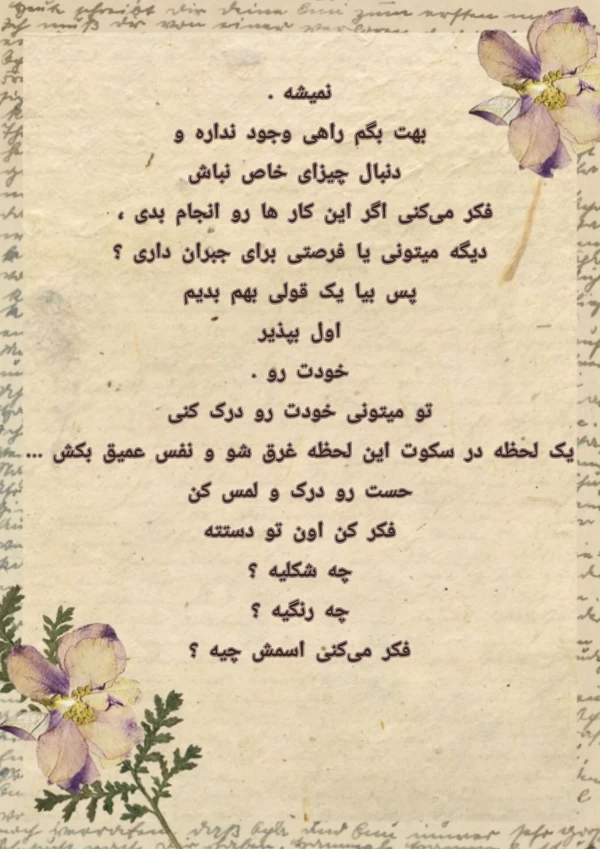 نمیشه .
بهت بگم راهی وجود نداره و
دنبال چیزای خاص نباش
فکر می‌کنی اگر این کار ها رو انجام بدی ،
دیگه میتونی یا فرصتی برای جبران داری ؟
پس بیا یک قولی بهم بدیم
اول بپذیر
خودت رو .
تو میتونی خودت رو درک کنی
یک لحظه در سکوت این لحظه غرق شو و نفس عمیق بکش ...
حست رو درک و لمس کن
فکر کن اون تو دستته
چه شکلیه ؟
چه رنگیه ؟
فکر می‌کنی اسمش چیه ؟